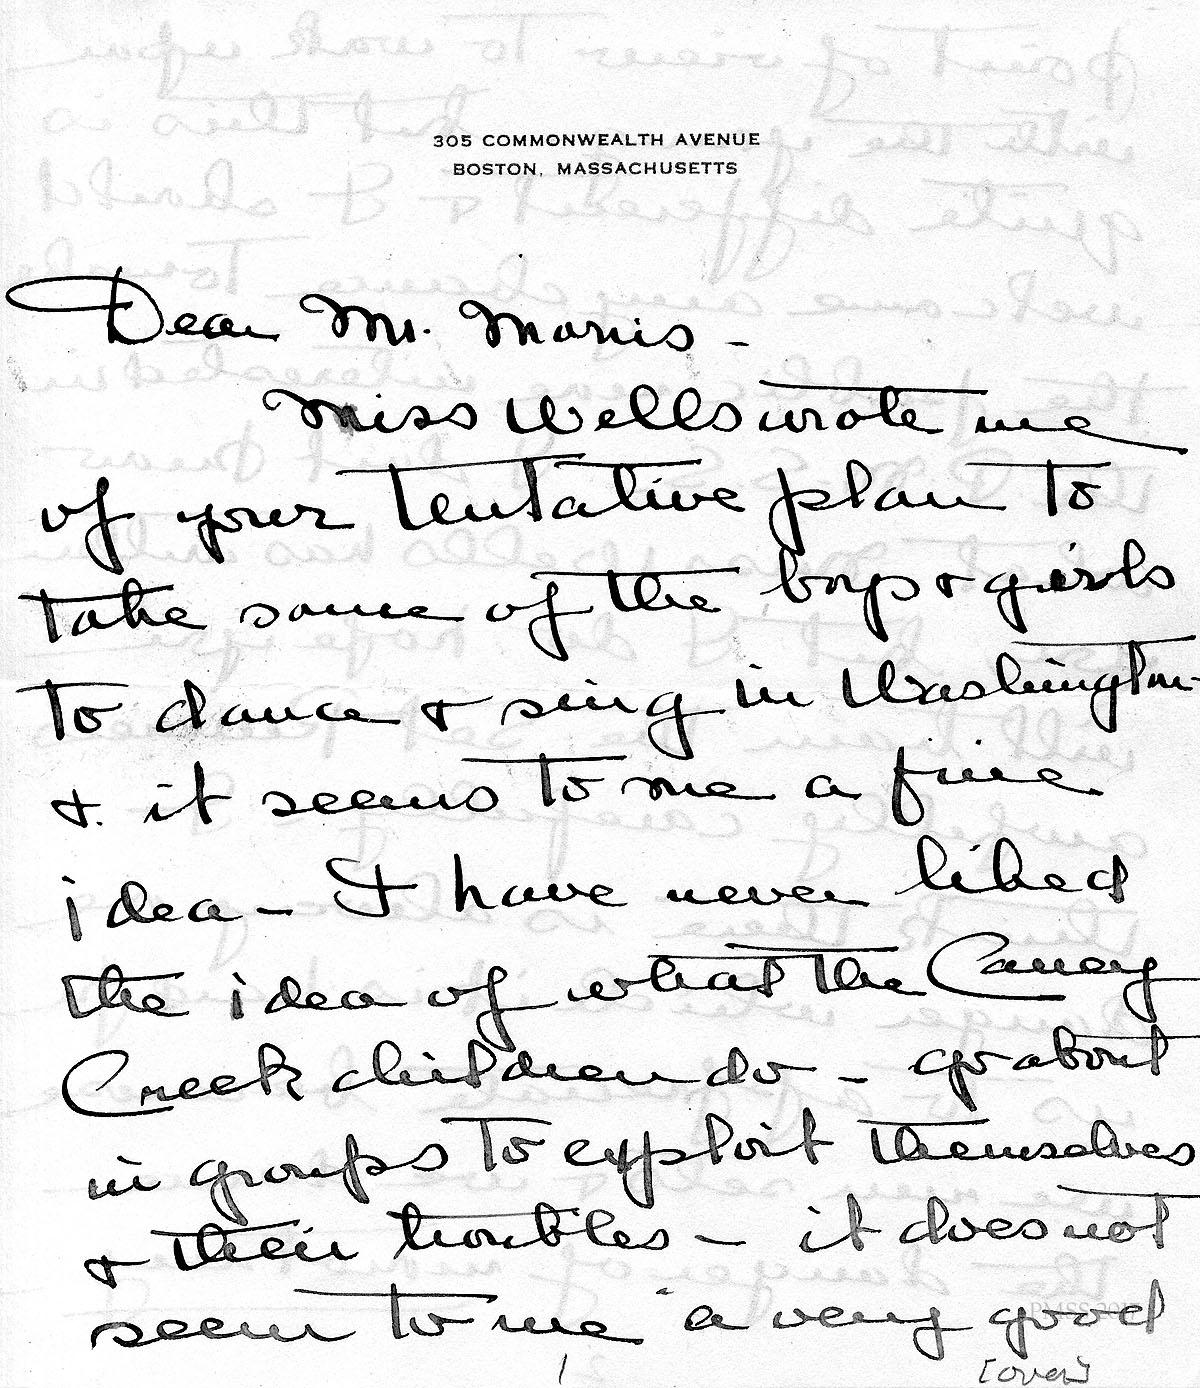 305 COMMONWEALTH AVENUE
BOSTON, MASSACHUSETTS
Dear Mr. Morris -
Miss Wells wrote me
of your tentative plan to
take some of the boys & girls
to dance & sing in Washington -
& it seems to me a fine
idea - I have never liked
the idea of what the Caney
Creek children do - go about
in groups to exploit themselves
& their troubles - it does not
seem to me a very good
1
[over]